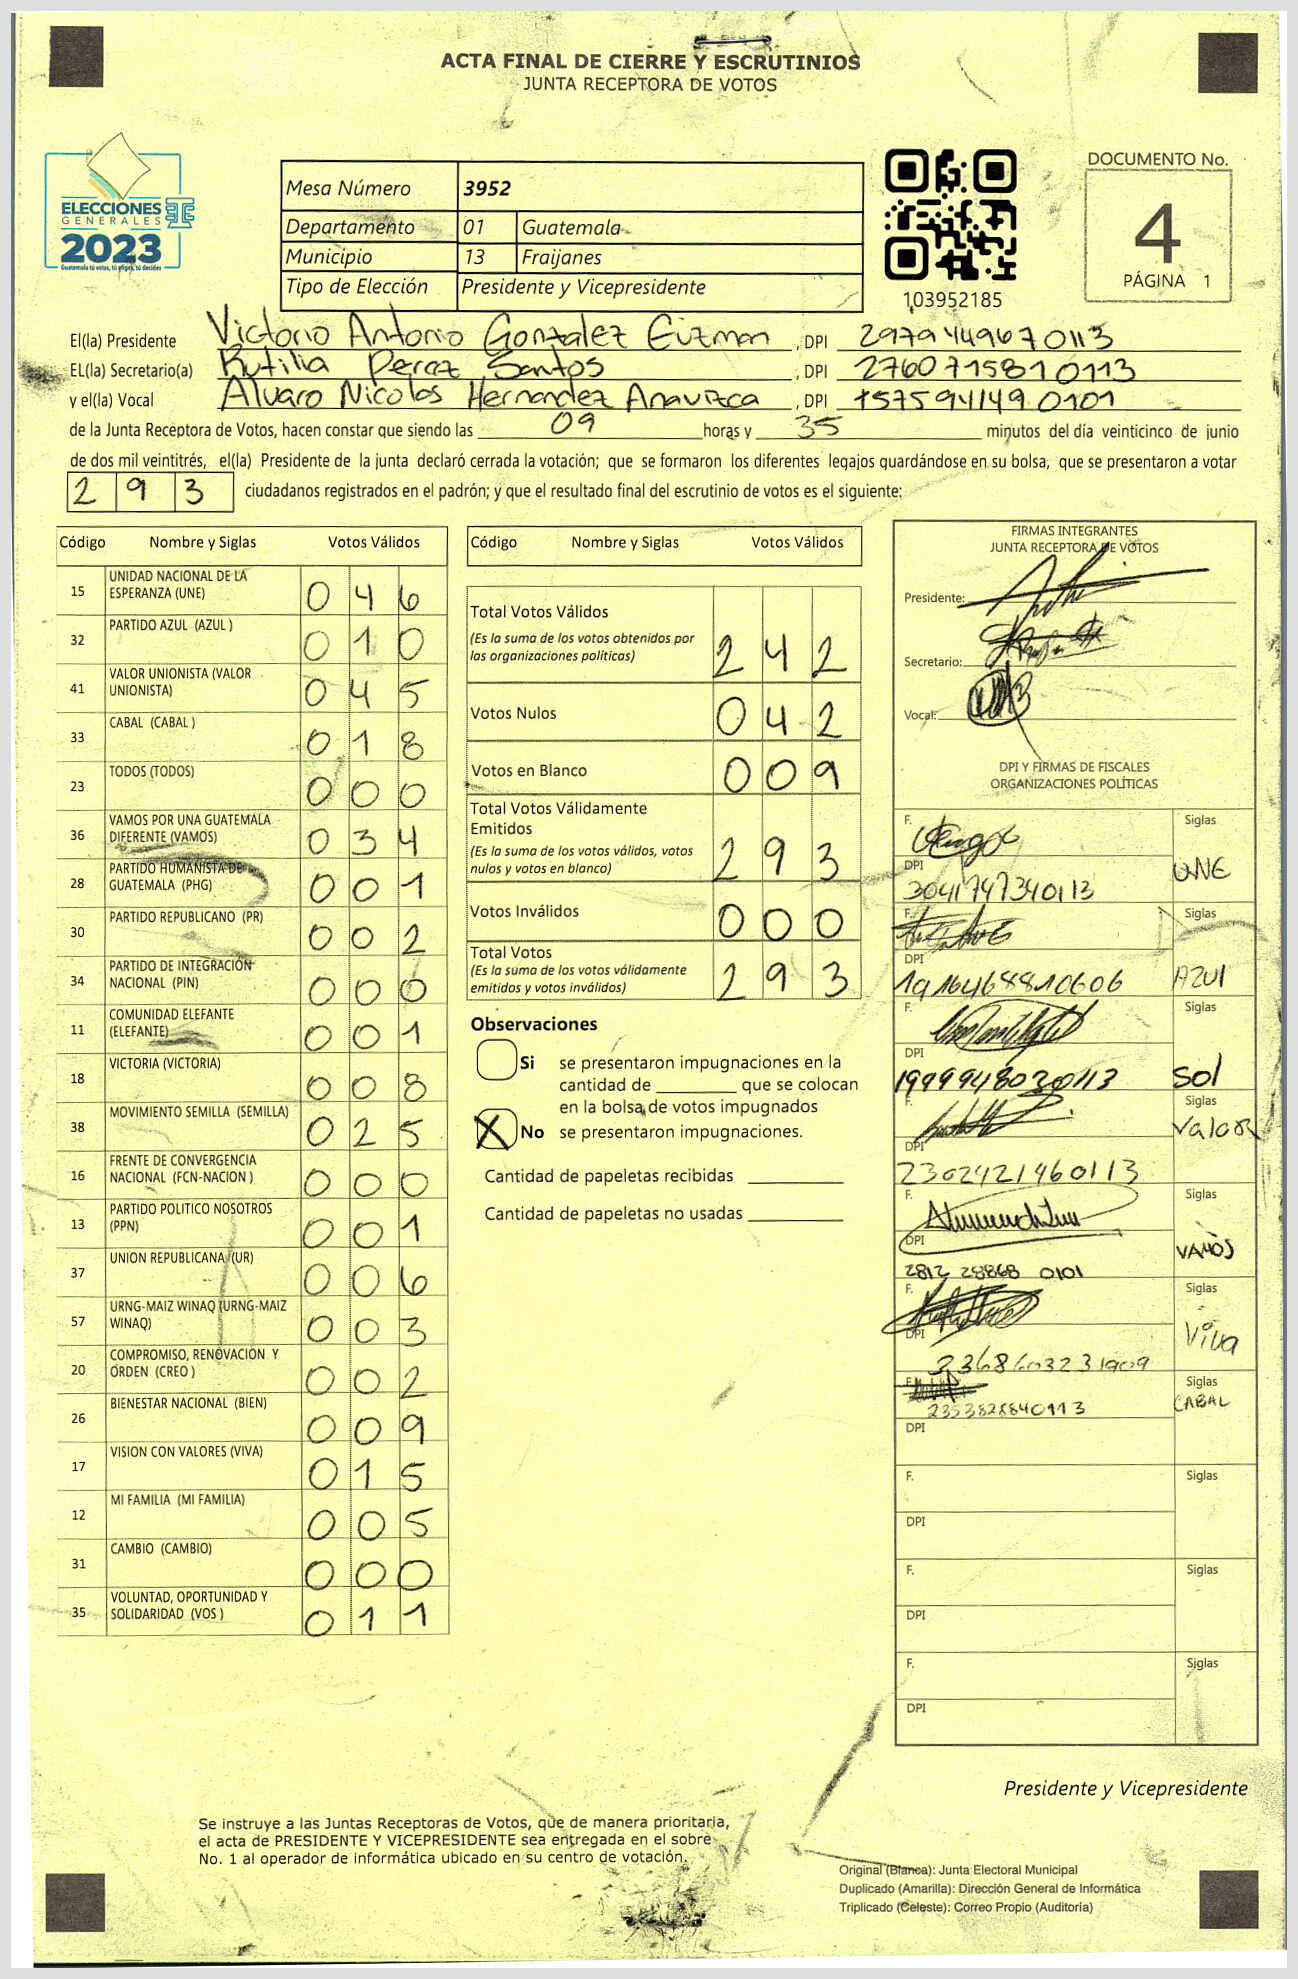 ACTA FINAL DE CIERRE Y ESCRUTINIOS
JUNTA RECEPTORA DE VOTOS
ELECCIONES
GENERALES
2023
Guatemala tú votas, tú eliges, tú decides
Mesa Número 3952
Departamento 01 Guatemala
Municipio 13 Fraijanes
Tipo de Elección Presidente y Vicepresidente
103952185
DOCUMENTO No.
4
PÁGINA 1
El(la) Presidente Victorio Antonio Gonzalez Guzman, DPI 2979449670113
EL(la) Secretario(a) Rutilia Perez Santos, DPI 2760715810113
y el(la) Vocal Alvaro Nicolas Hernandez, DPI 1575941490101
de la Junta Receptora de Votos, hacen constar que siendo las 09 horas y 35 minutos del día veinticinco de junio
de dos mil veintitrés, el(la) Presidente de la junta declaró cerrada la votación; que se formaron los diferentes legajos guardándose en su bolsa, que se presentaron a votar
293 ciudadanos registrados en el padrón; y que el resultado final del escrutinio de votos es el siguiente:
Código Nombre y Siglas Votos Válidos
15 UNIDAD NACIONAL DE LA ESPERANZA (UNE) 046
32 PARTIDO AZUL (AZUL ) 010
41 VALOR UNIONISTA (VALOR UNIONISTA) 045
33 CABAL (CABAL ) 018
23 TODOS (TODOS) 000
36 VAMOS POR UNA GUATEMALA DIFERENTE (VAMOS) 034
28 PARTIDO HUMANISTA DE GUATEMALA (PHG) 001
30 PARTIDO REPUBLICANO (PR) 002
34 PARTIDO DE INTEGRACIÓN NACIONAL (PIN) 000
11 COMUNIDAD ELEFANTE (ELEFANTE) 001
18 VICTORIA (VICTORIA) 008
38 MOVIMIENTO SEMILLA (SEMILLA) 025
16 FRENTE DE CONVERGENCIA NACIONAL (FCN-NACION ) 000
13 PARTIDO POLITICO NOSOTROS (PPN) 001
37 UNION REPUBLICANA (UR) 006
57 URNG-MAIZ WINAQ (URNG-MAIZ WINAQ) 003
20 COMPROMISO, RENOVACION Y ORDEN (CREO ) 002
26 BIENESTAR NACIONAL (BIEN) 009
17 VISION CON VALORES (VIVA) 015
12 MI FAMILIA (MI FAMILIA) 005
31 CAMBIO (CAMBIO) 000
35 VOLUNTAD, OPORTUNIDAD Y SOLIDARIDAD (VOS ) 011
Código Nombre y Siglas Votos Válidos
Total Votos Válidos 242
(Es la suma de los votos obtenidos por
las organizaciones políticas)
Votos Nulos 042
Votos en Blanco 009
Total Votos Válidamente
Emitidos 293
(Es la suma de los votos válidos, votos
nulos y votos en blanco)
Votos Inválidos 000
Total Votos 293
(Es la suma de los votos válidamente
emitidos y votos inválidos)
Observaciones
Si se presentaron impugnaciones en la
cantidad de ________ que se colocan
en la bolsa de votos impugnados
X No se presentaron impugnaciones.
Cantidad de papeletas recibidas
Cantidad de papeletas no usadas
FIRMAS INTEGRANTES
JUNTA RECEPTORA DE VOTOS
Presidente:
Secretario:
Vocal:
DPI Y FIRMAS DE FISCALES
ORGANIZACIONES POLÍTICAS
F. Siglas
DPI UNE
3041747340113
F. Siglas
DPI AZUL
1916468810606
F. Siglas
DPI
1999948030113 Sol
F. Siglas
DPI Valor
2302421460113
F. Siglas
DPI VAMOS
2812 28868 0101
F. Siglas
DPI Viva
2368603231909
F. Siglas
2353828840113 CABAL
DPI
F. Siglas
DPI
F. Siglas
DPI
F. Siglas
DPI
Presidente y Vicepresidente
Se instruye a las Juntas Receptoras de Votos, que de manera prioritaria,
el acta de PRESIDENTE Y VICEPRESIDENTE sea entregada en el sobre
No. 1 al operador de informática ubicado en su centro de votación.
Original (Blanca): Junta Electoral Municipal
Duplicado (Amarilla): Dirección General de Informática
Triplicado (Celeste): Correo Propio (Auditoría)